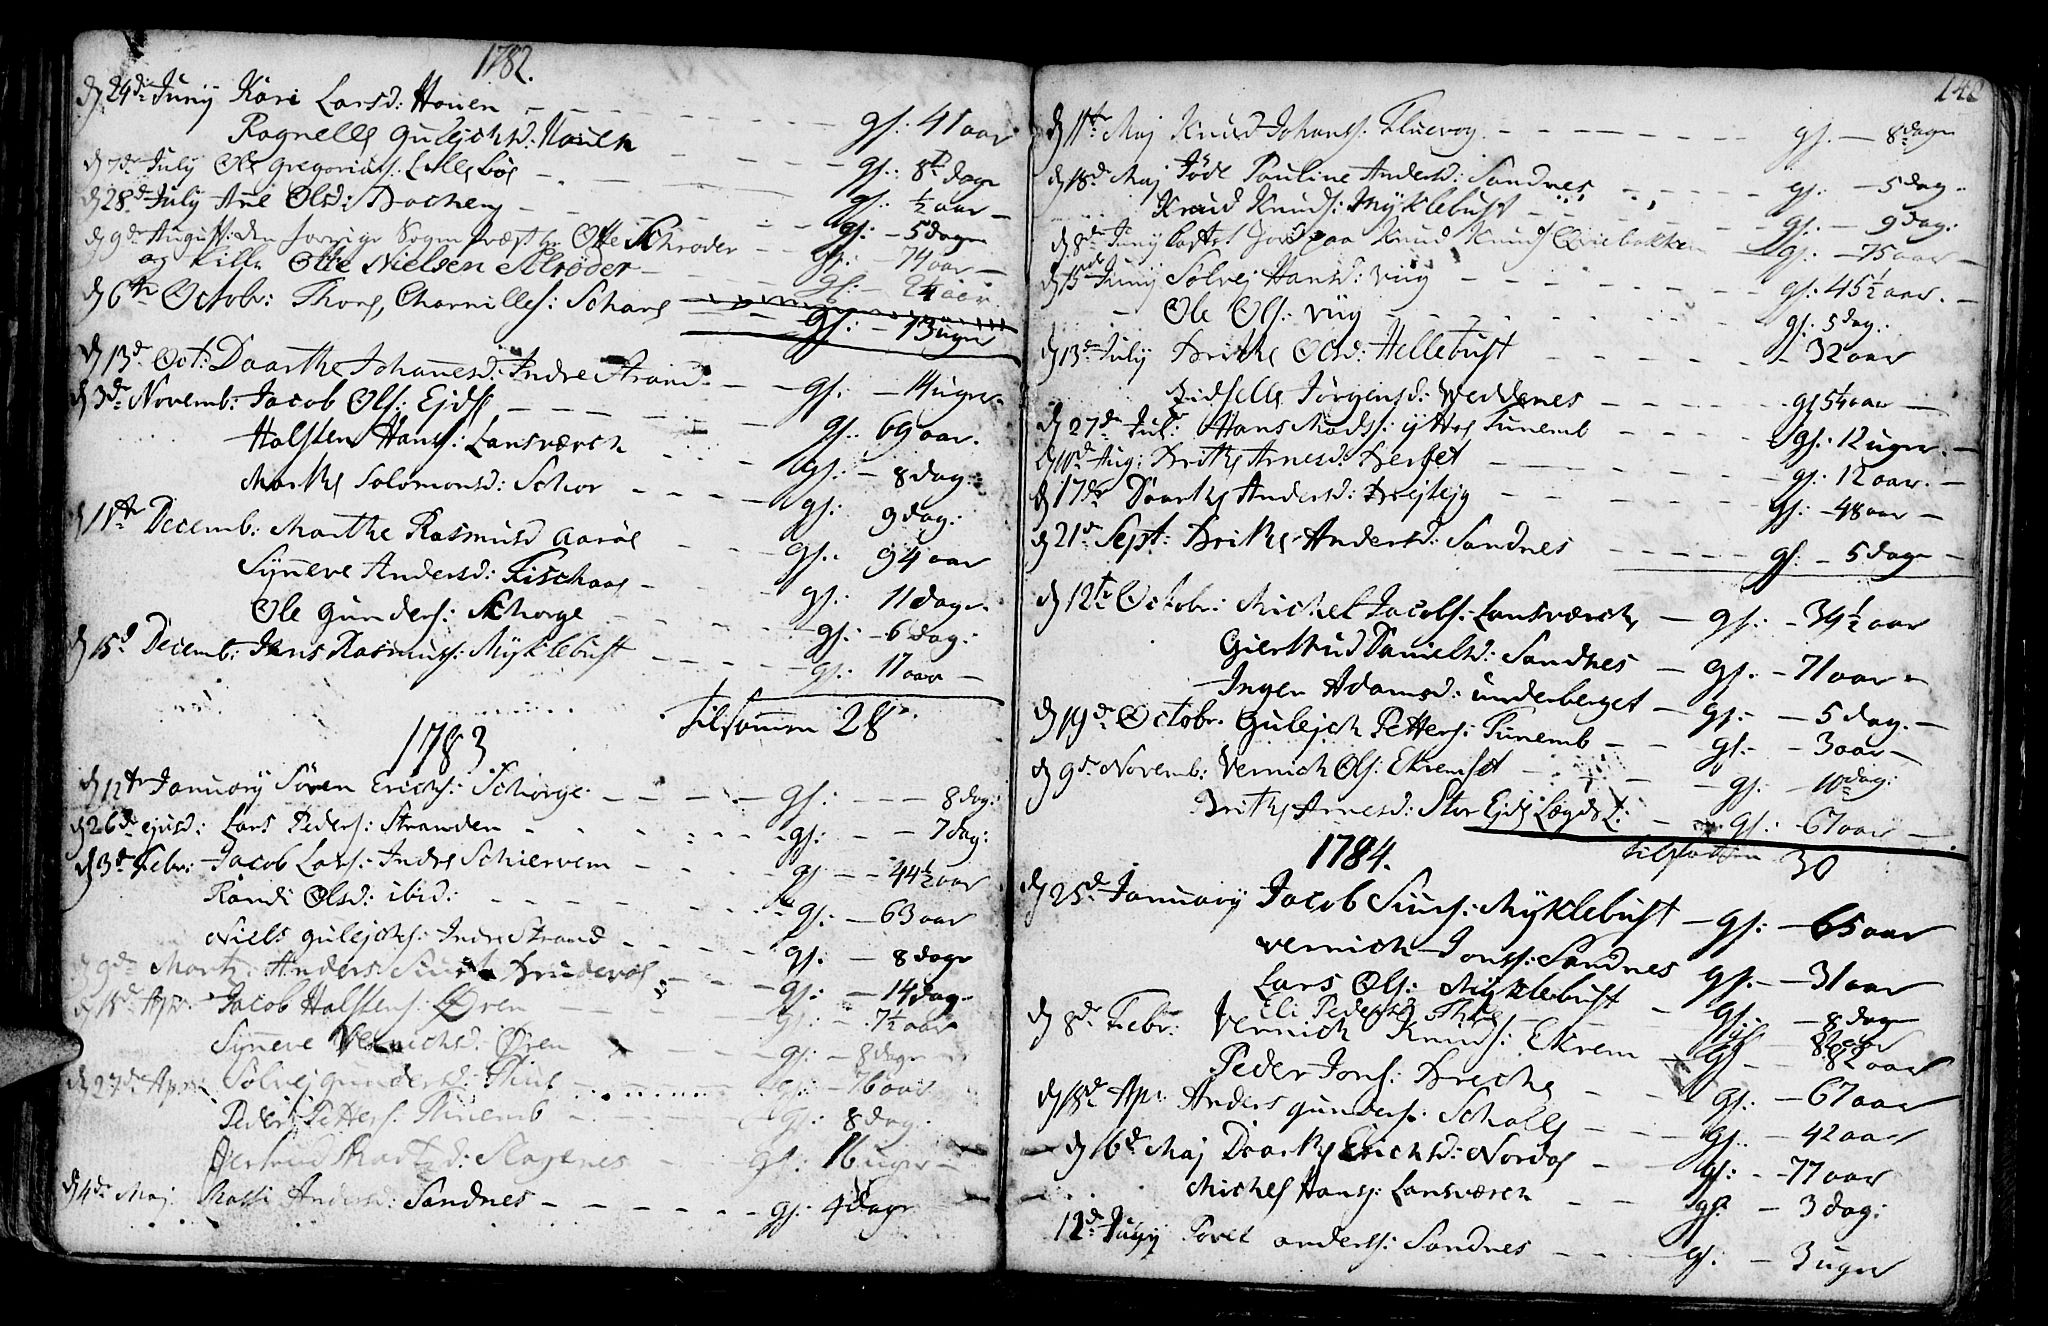 1782.
d 24de Junij Kari Larsd: Houen gs: 41 aar
Ragnelle Gulejchsd: Houen gs: 8 dage
d 7de July Ole Gregoriuss: Lillebøe gs: ½ aar
d 28d July Ane Olsd: gs: 5 dage
d 9de August: den forrige Sogne Præst hr Otte Schrøder gs: 74 aar
og lille Otte Nielsen Schrøder gs:
d 6te Octobr: Thore Charnilles: Schare gs: 13 uger
d 13de Oct: Daarthe Johanesd: Indre Strand gs: 14 uger
d 3de Novemb: Jacob Ols: Ejde gs: 69 aar.
Halsten Hans: Lansværch gs: 8 dag:
Marthe Solomonsd: Schor gs: 9 dag:
d 11te Decemb: Marthe Rasmusd Aarøe gs: 94 aar
Syneve Andersd: Fischaae gs: 11 dage
Ole Gunders: Schorge gs: 6 dag:
d 15d Decemb: Jens Rasmuss: Myklebust gs: 17 aar
Tilsamen 28
1783
d 12te January Søren Erichs: Schorge gs: 8 dag:
d 26de ejusd: Lars Peders: Stranden gs: 7 dag:
d 3de Febr: Jacob Lars: Indre Schiervem gs: 44½ aar
Randi Olsd: ibid: gs: 63 aar
Niels Gulejchs: Indre Strand gs: 8 dage
d 9de Martz: Anders gs: 14 dage
d 18de Apr. Jacob Halstens: Øren gs: 7½ aar
Syneve Vernichsd: Øren gs: 8 dage
d 27de Apr. Solvej Gundersd: gs: 76 aar
Peder Petters: Tunemb gs: 8 dag:
Giertrud Martzd: Slagnes gs: 16 uger
d 4de Maj Massi Andersd: Sandnes gs: 4 dage
142
d 11te Maj Knud Johans: Fluevog gs: 8 dage
d 18de Maj Jøde Pauline Andersd: Sandnes gs: 5 dag.
Knud Knuds: Myklebust gs: 9 dag:
d 8de Juny kastet Jord paa Knud Knuds Qviebakken gs: 75 aar
d 15de Juny Solvej Hansd: Viig gs: 45½ aar.
Ole Ols: Viig gs: 5 dag:
d 13de July Brithe Olsd: Hellebust 32 aar
Zidselle Jørgensd: Weddenes gs 54 aar
d 27de Jul: Hans Mads: ytre Tunemb gs: 12 uger.
d 10de Aug: Brithe Arnesd: Berget gs: 12 aar.
d 17de Daarthe Andersd: gs: 48 aar
d 21de Sept: Brithe Andersd: Sandnes gs: 5 dage
d 12te Octobr: Michel Jacobs: Lansværch gs: 34½ aar
Giertrud Danielsd: Sandnes gs: 71 aar
Inger Adamsd: Underberget gs: 5 dag.
d 19de Octobr. Gulejch Petters: Tunemb gs: 3 aar
d 9de Novemb: Vernich Ols: Ekremset gs: 10 dag:
Brithe Arnesd: Stor Ejde Lægds L: gs: 67 aar
Tilsamen 30
1784.
d 25de January Jacob Siurs: Myklebust gs: 65 aar
Vernich Jons: Sandnes gs. 31 aar
Lars Ols: Myklebust gs: 8 dage
Eli Pedersd
d 8de Febr: Vernich Knuds: Ekrem gs 82 aar
Peder Jons: Breche gs. 67 aar
d 18de Apr: Anders Gunders: Scholle gs: 42 aar
d 16de Maj Daarthe Erichsd: Nordøe gs: 77 aar
Michel Hans: Lansværch gs: 3 dag:
12de Juny Povel Anders: Sandnes gs. 3 uger